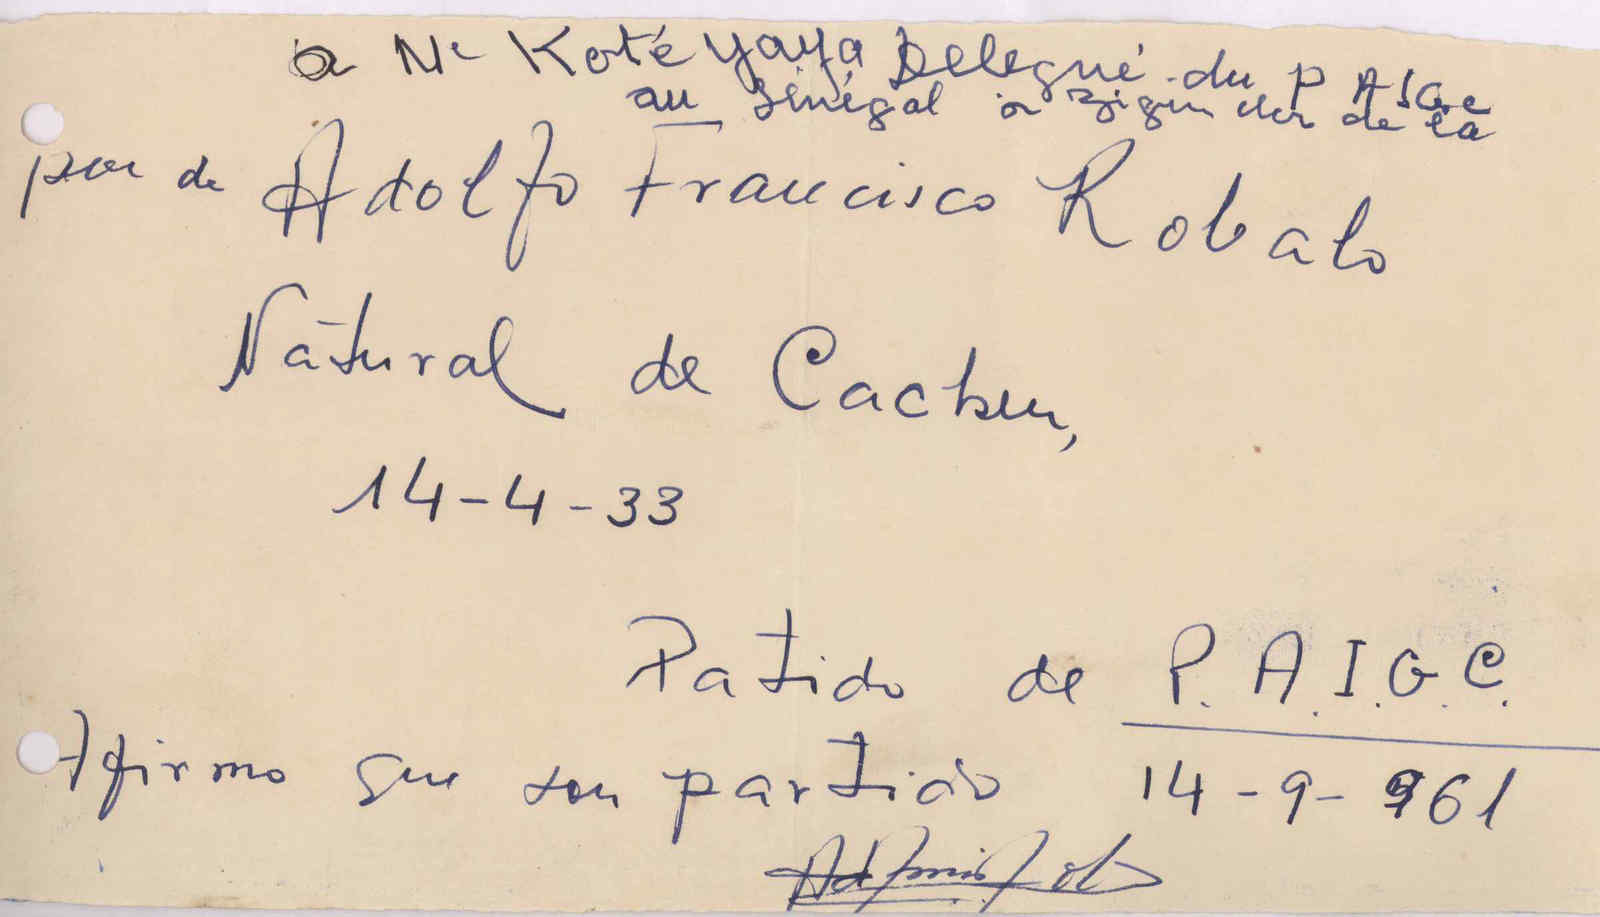 a Mr Koté Yaya Delegué du PAIGC
au Sénégal à Ziguinchor de la
par de Adolfo Francisco Robalo
Natural de Cacheu,
14-4-33
Patido de P.A.I.G.C.
Afirmo que sou partido 14-9-961